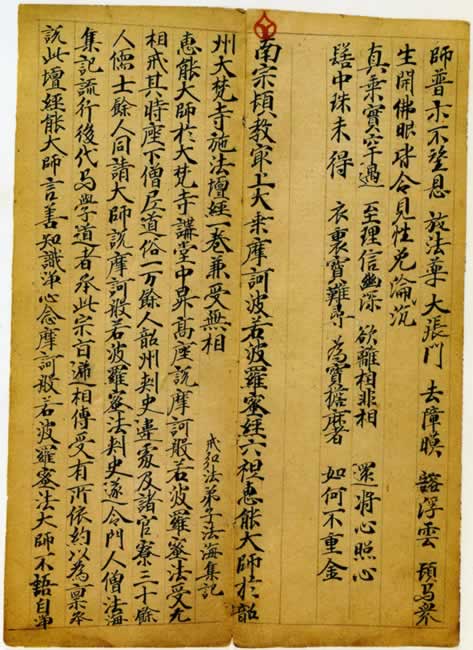 師普示不望息 施法藥大張門 去障膜 豁浮雲 頓為衆
生開佛眼皆令見性免淪沉
真乘實罕遇 至理信幽深 欲離相非相 還將心照心
髻中珠未得 衣裏寶難尋 為寶擔麻者 如何不重金
南宗頓教最上大乘摩訶波若波羅蜜經六祖惠能大師於韶
州大梵寺施法壇經一卷兼受無相
戒弘法弟子法海集記
惠能大師於大梵寺講堂中昇高座說摩訶般若波羅蜜法受无
相戒其時座下僧尼道俗一万餘人韶州刺史違處及諸官寮三十餘
人儒士餘人同請大師說摩訶般若波羅蜜法刺史遂令門人僧法海
集記流行後代与學道者承此宗旨遞相傳受有所依約以為稟承
說此壇經能大師言善知識淨心念摩訶般若波羅蜜法大師不語自淨